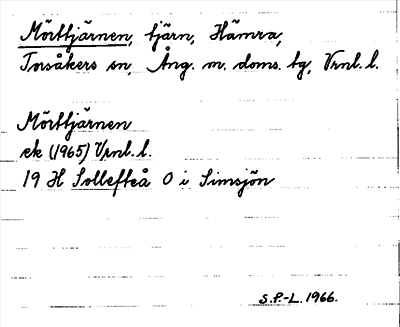 Mörttjärnen, tjärn, Hämra,
Torsåkers sn, Ång. m. doms. tg, Vrnl. l.
Mörttjärnen
ek (1965) Vrnl. l.
19 H Sollefteå O i Simsjön
S.P.-L. 1966.